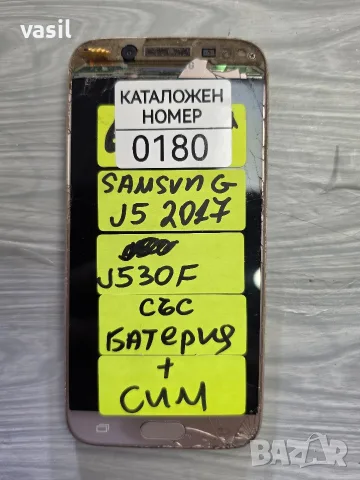 vasil
КАТАЛОЖЕН
НОМЕР
0180
SAMSUNG
J5 2017
J530F
СЪС
БАТЕРИЯ
+
СИМ
BAZAR